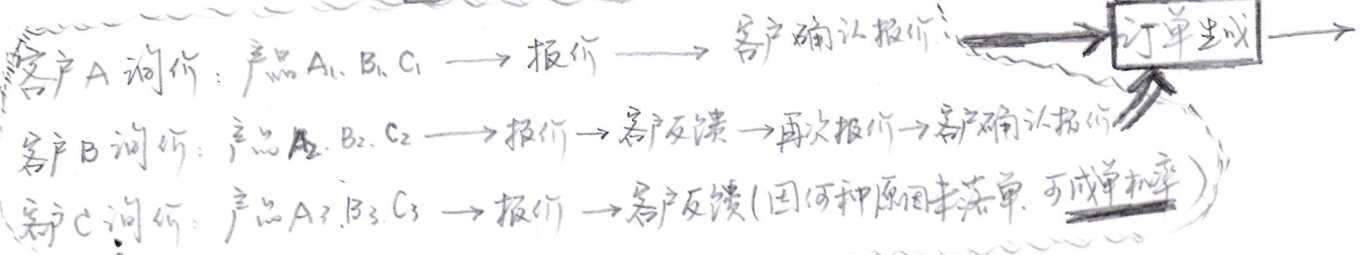 客户A询价：产品A₁、B₁、C₁ → 报价 → 客户确认报价 → 订单生成 →
客户B询价：产品A₂、B₂、C₂ → 报价 → 客户反馈 → 再次报价 → 客户确认报价
客户C询价：产品A₃、B₃、C₃ → 报价 → 客户反馈(因何种原因未落单、可成单机率)